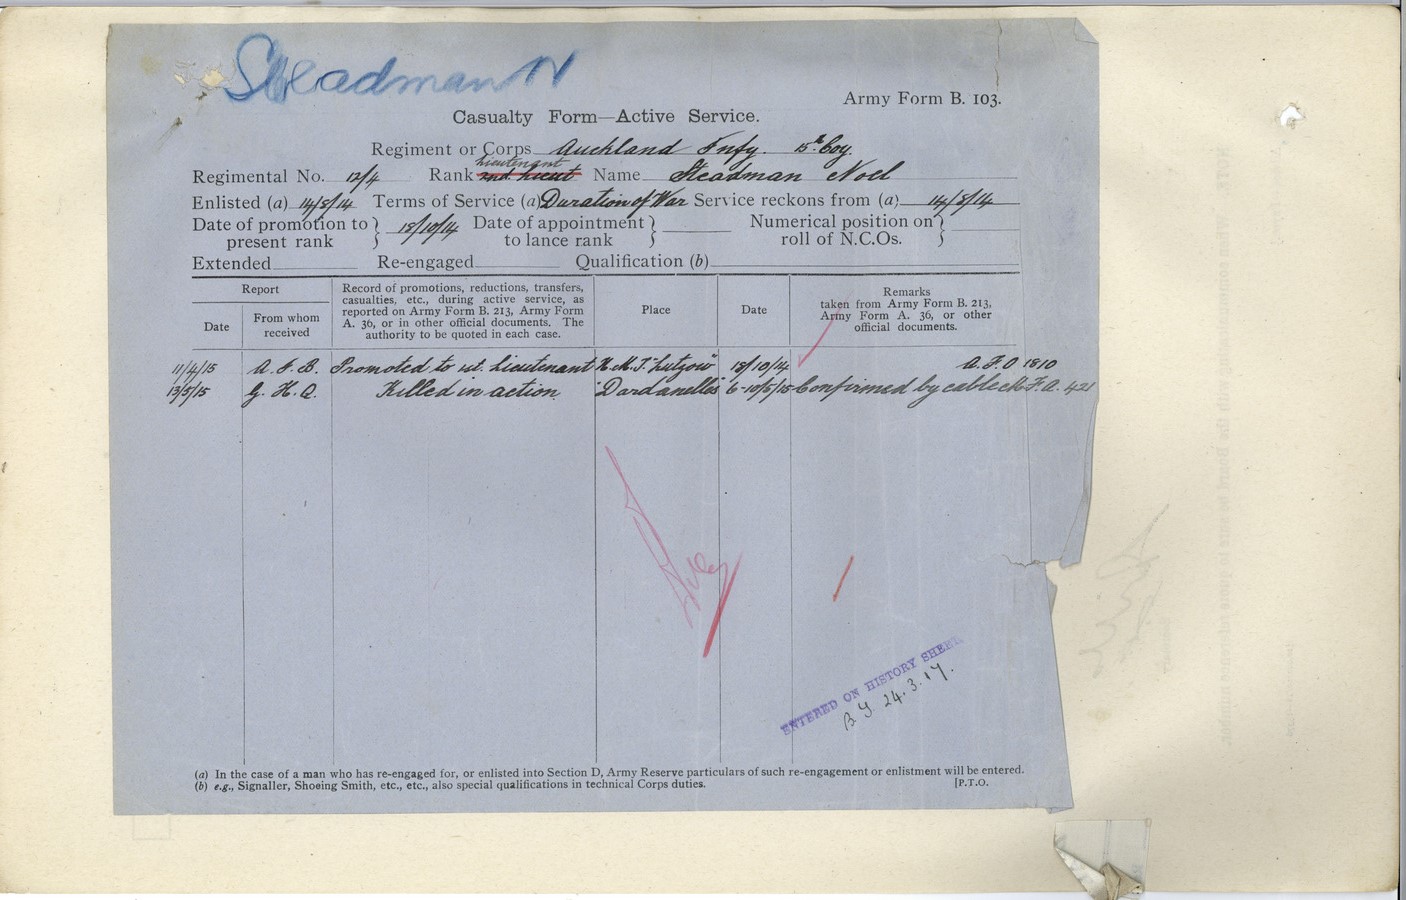 Steadman N
Army Form B. 103.
Casualty Form—Active Service.
Regiment or Corps Auckland Infy. 15th Coy.
Lieutenant
Regimental No. 12/4 Rank 2nd Lieut Name Steadman Noel
Enlisted (a) 14/8/14 Terms of Service (a) Duration of War Service reckons from (a) 14/8/14
Date of promotion to present rank } 18/10/14 Date of appointment to lance rank } Numerical position on roll of N.C.Os. }
Extended Re-engaged Qualification (b)
Report
Date
From whom received
Record of promotions, reductions, transfers,
casualties, etc., during active service, as
reported on Army Form B. 213, Army Form
A. 36, or in other official documents. The
authority to be quoted in each case.
Place
Date
Remarks
taken from Army Form B. 213,
Army Form A. 36, or other
official documents.
11/4/15 A. F. B. Promoted to 1st. Lieutenant H.M.T. "Lutzow" 18/10/14 A.F.O 1810
13/5/15 G. H. Q. Killed in action "Dardanelles" 6-10/5/15 Confirmed by cable F.A. 421
ENTERED ON HISTORY SHEET
24.3.17.
(a) In the case of a man who has re-engaged for, or enlisted into Section D, Army Reserve particulars of such re-engagement or enlistment will be entered.
(b) e.g., Signaller, Shoeing Smith, etc., etc., also special qualifications in technical Corps duties. [P.T.O.